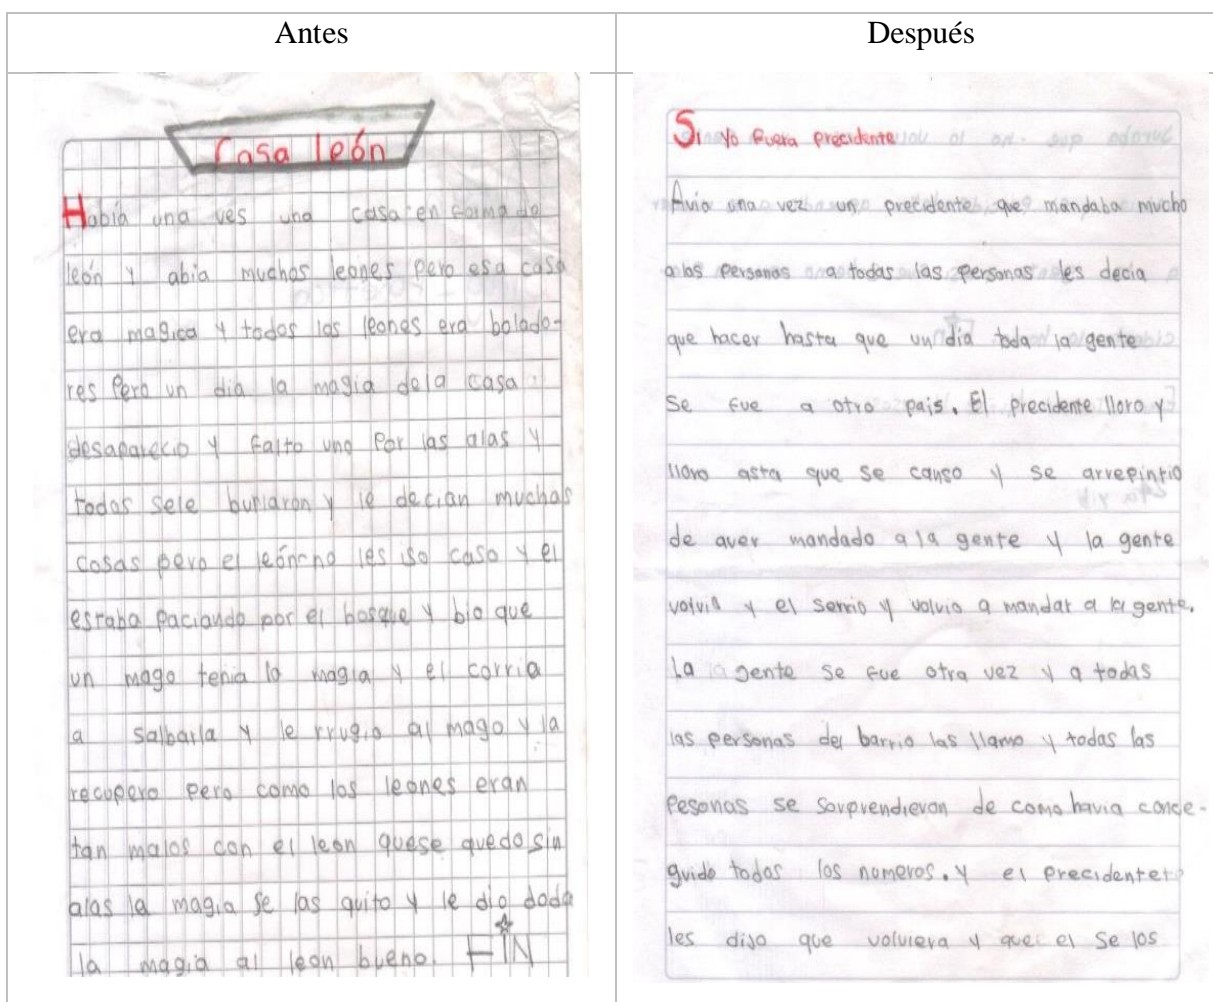 Antes
Casa león
Había una ves una casa en forma de
león y abia muchos leones pero esa casa
era magica y todos los leones era bolado-
res pero un dia la magia dela casa
desaparecio y falto uno por las alas y
todos sele burlaron y le decian muchas
cosas pero el león no les iso caso y el
estaba paciando por el bosque y bio que
un mago tenia la magia y el corria
a salbarla y le rrugio al mago y la
recupero pero como los leones eran
tan malos con el leon quese quedo sin
alas la magia se las quito y le dio doda
la magia al leon bueno. FIN
Después
Si yo fuera precidente
Avia una vez un precidente que mandaba mucho
a las personas a todas las personas les decia
que hacer hasta que un dia toda la gente
se fue a otro pais. El precidente lloro y
lloro asta que se canso y se arrepintio
de aver mandado a la gente y la gente
volvio y el sonrio y volvio a mandar a la gente.
La gente se fue otra vez y a todas
las personas del barrio las llamo y todas las
pesonas se sorprendieron de como havia conce-
guido todos los numeros. y el precidente
les dijo que volviera y que el se los